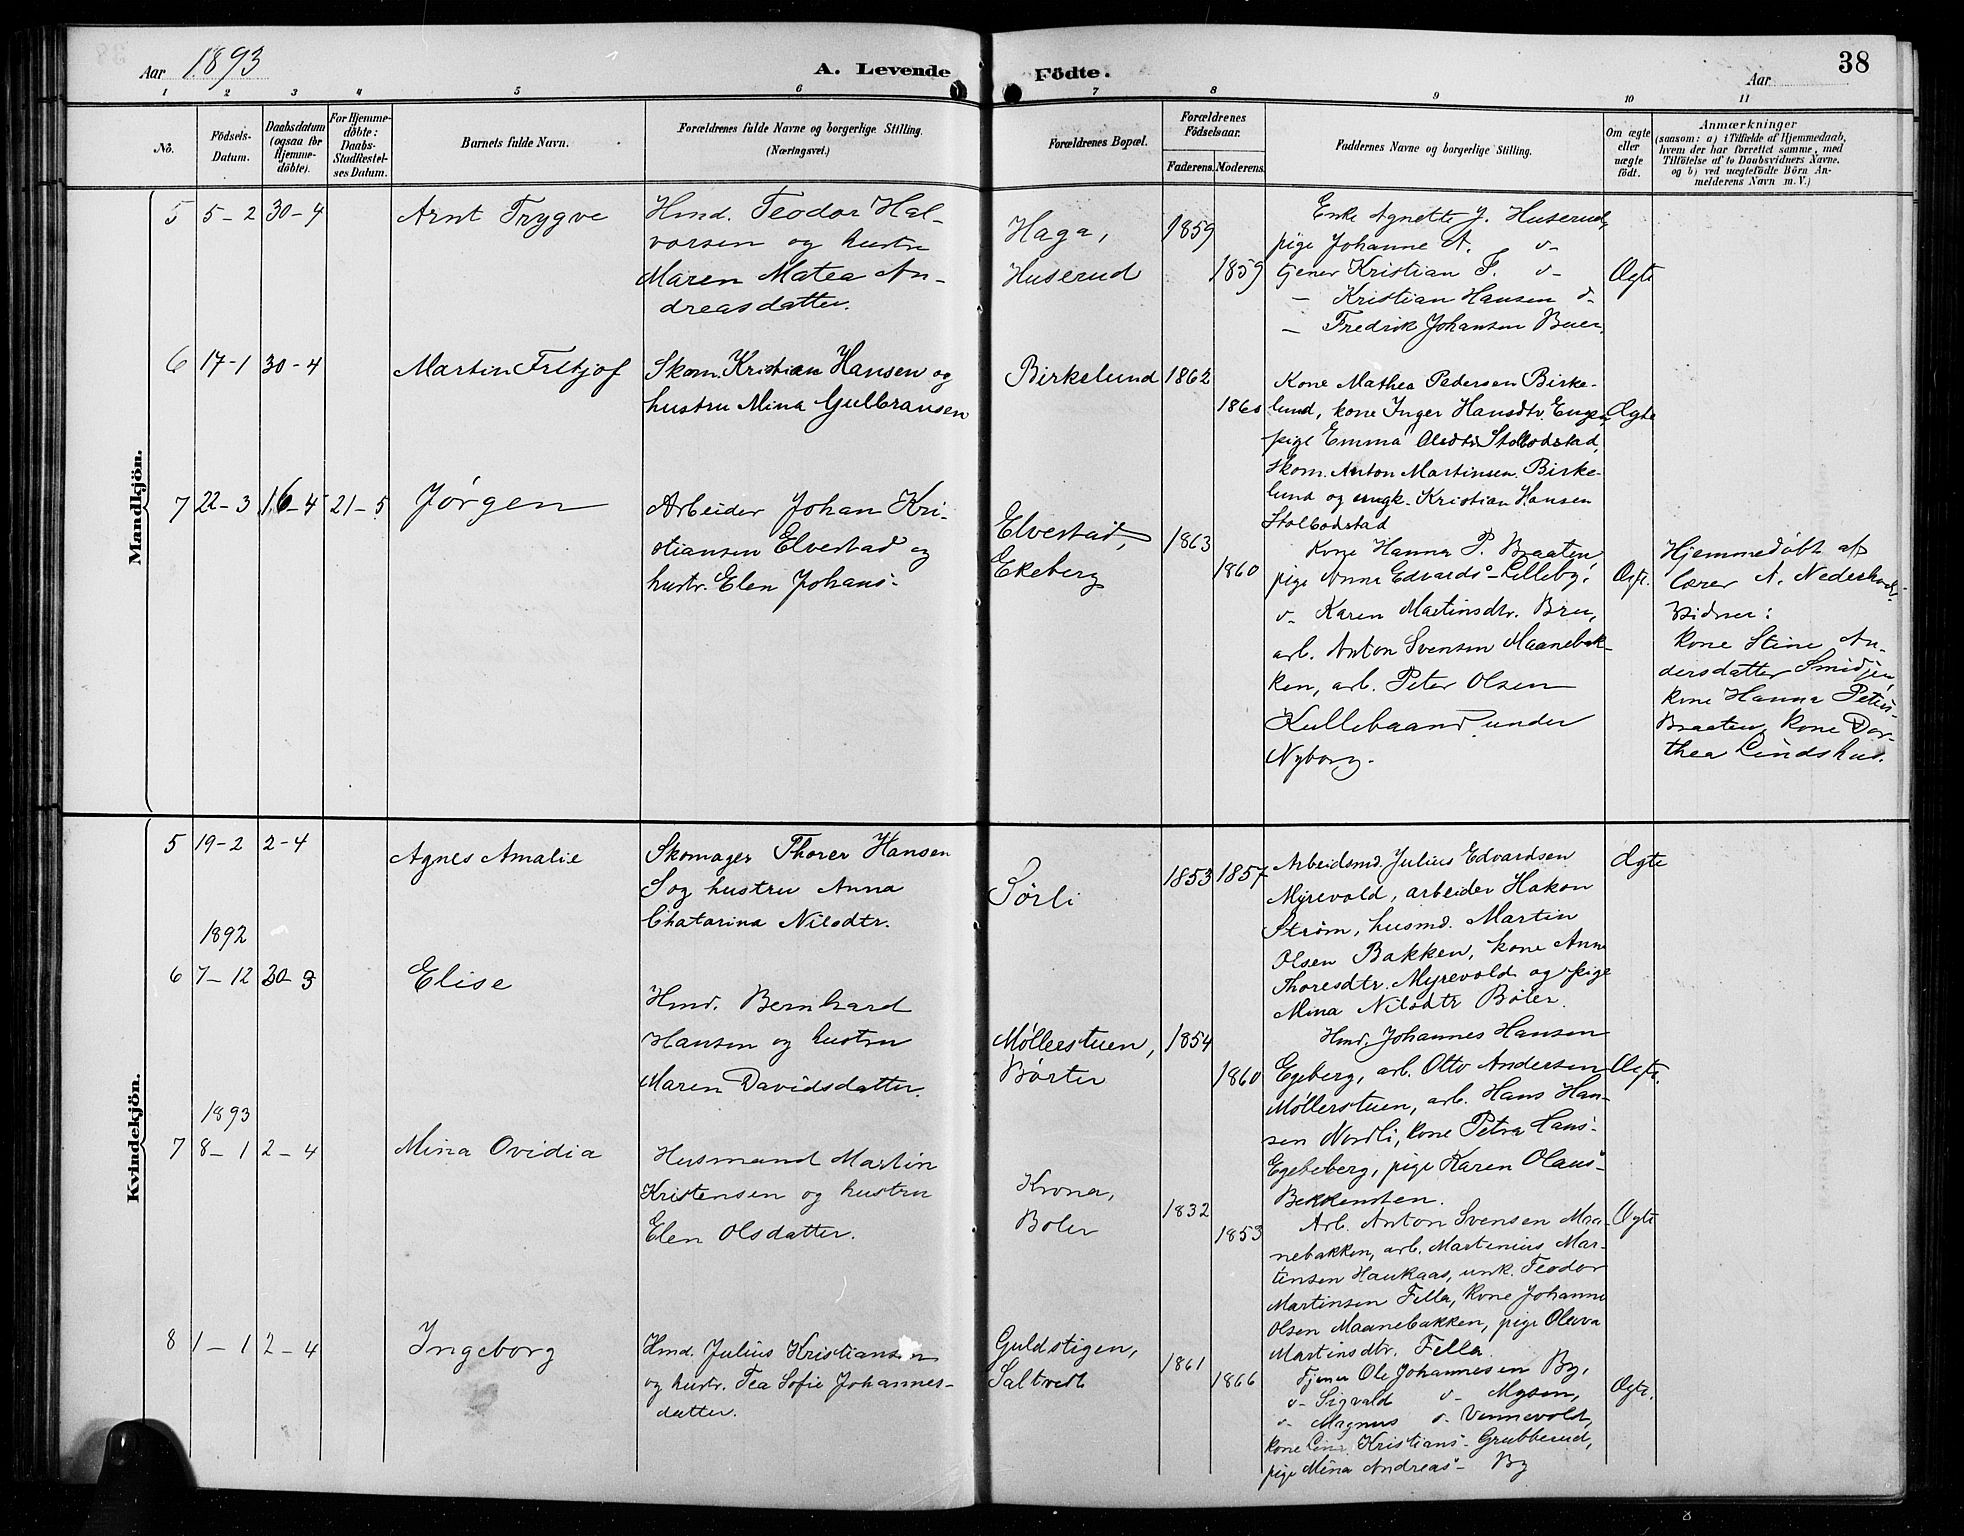 Aar 1893
A. Levende
Födte.
Aar
38
1 2 3 4 5 6 7 8 9 10 11
No.
Födsels-
Datum.
Daabsdatum
(ogsaa for
Hjemme-
döbte).
For Hjemme-
döbte:
Daabs-
Stadfestel-
ses Datum.
Barnets fulde Navn.
Forældrenes fulde Navne og borgerlige Stilling.
(Næringsvei.)
Forældrenes Bopæl.
Forældrenes
Födselsaar.
Faderens. Moderens.
Faddernes Navne og borgerlige Stilling.
Om ægte
eller
uægte
födt.
Anmærkninger
(saasom: a) i Tilfælde af Hjemmedaab,
hvem der har forrettet samme, med
Tilföielse af to Daabsvidners Navne,
og b) ved uægtefödte Börn An-
melderens Navn m. V.)
Mandkjön.
5 5-2 30-4
Arnt Trygve
Hmd. Teodor Hal-
vorsen og hustru
Maren Matea An-
dreasdatter.
Haga,
Huserud
1859
1859
Enke Agnette J. Huserud,
pige Johanne A. o-
tjener Kristian F. o-
- Kristian Hansen o-
- Fredrik Johansen Buer.
Ægte
6 17-1 30-4
Martin Fritjof
Skom. Kristian Hansen og
hustru Mina Gulbransen
Birkelund
1862
1860
Kone Mathea Pedersen Birke-
lund, kone Inger Hansdtr. Engen,
pige Emma Olsdtr. Stolbodstad,
skom. Anton Martinsen Birke-
lund og ungk. Kristian Hansen
Stolbodstad
Ægte
7 22-3 16-4 21-5
Jørgen
Arbeider Johan Kri-
stiansen Elvestad og
hustr. Elen Johans-
Elvestad,
Ekeberg
1863
1860
Kone Hanna P. Braaten,
pige Anne Edvards- Lilleby,
o- Karen Martinsdtr. Bru,
arb. Anton Svensen Maanebak-
ken, arb. Peter Olsen
Kullebaand under
Nyborg.
Ægte.
Hjemmedøbt af
lærer A.
Vidner:
kone Stine An-
dersdatter Smidjen,
kone Hanna Peters-
Braaten, kone Dor-
thea Lindshus.
Kvindekjön.
5 19-2 2-4
Agnes Amalie
Skomager Thorer Hansen
S og hustru Anna
Chatarina Nilsdtr.
Sørli
1853 1857
Arbeidsmd. Julius Edvardsen
Myrevold, arbeider Hakon
Strøm, husmd. Martin
Olsen Bakken, kone Anne
Thoresdtr. Myrevold og pige
Mina Nilsdtr Bøler.
Ægte
1892
6 7-12 30-3
Elise
Hmd. Bernhard
Hansen og hustru
Maren Davidsdatter.
Møllerstuen,
Børter
1854
1860
Hmd. Johannes Hansen
Egeberg, arb. Otto Andersen
Møllerstuen, arb. Hans Han-
sen Nordli, kone Petra Lars-
Egeberg, pige Karen Olaus-
Bekkensten.
Ægte.
1893
7 8-1 2-4
Mina Ovidia
Husmand Martin
Kristensen og hustru
Elen Olsdatter.
Krona,
Bøler
1832
1853
Arb. Anton Svensen Maa-
nebakken, arb. Martinius Mar-
tinsen Haukaas, unk. Teodor
Martinsen Fella, kone Johanne
Olsen Maanebakken, pige Oleva
Martinsdtr. Fella.
Ægte
8 1-1 2-4
Ingeborg
Hmd. Julius Kristiansen
og hustr. Tea Sofie Johannes-
datter.
Guldstigen,
Saltvedt
1861
1866
Tjener Ole Johannesen By,
o- Sigvald o- Mysen,
o- Magnus o- Vennevold,
kone Lina Kristians- Grubberud,
pige Mina Andreas- By
Ægte.